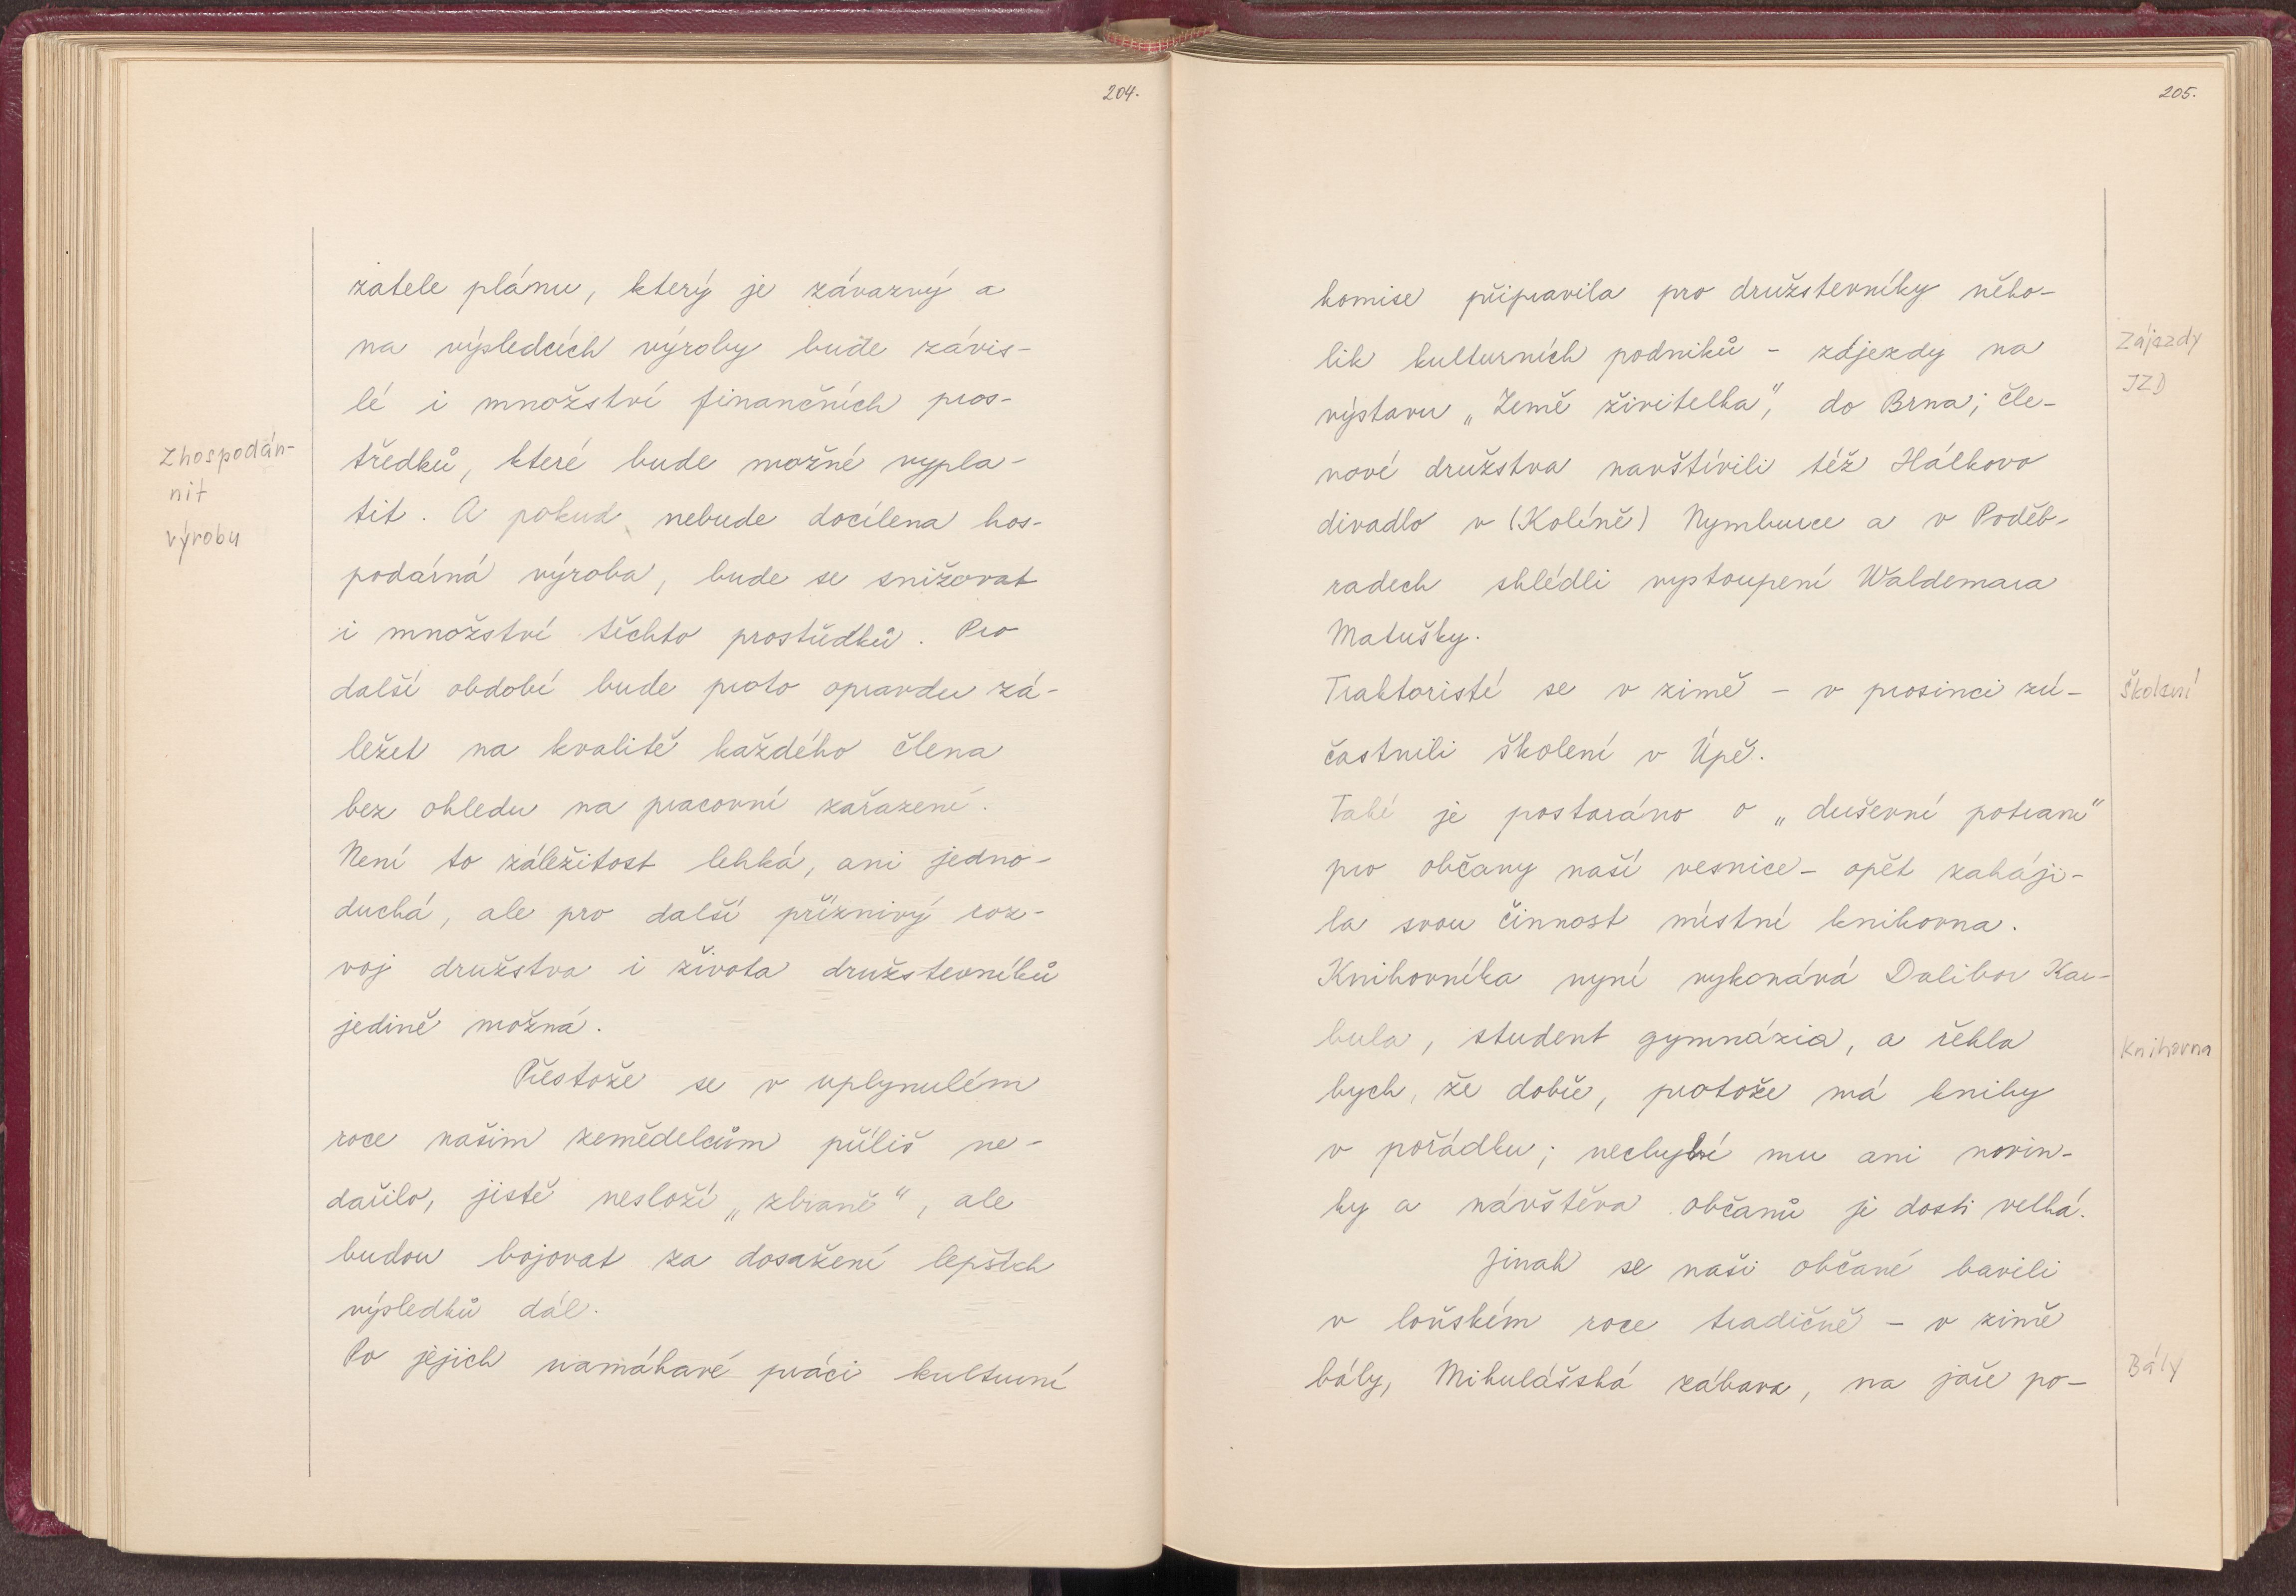 204.
zatele plánu, který je závazný a
na výsledcích výroby bude závis-
lé i množství finančních pros-
tředků, které bude možné vypla-
tit. A pokud nebude docílena hos-
podárná výroba, bude se snižovat
i množství těchto prostředků. Pro
další období bude proto opravdu zá-
ležet na kvalitě každého člena
bez ohledu na pracovní zařazení.
Není to záležitost lehká, ani jedno-
duchá, ale pro další příznivý roz-
voj družstva i života družstevníků
jedině možná.
Přestože se v uplynulém
roce našim zemědelcům příliš ne-
dařilo, jistě nesloží „zbraně“, ale
budou bojovat za dosažení lepších
výsledků dál.
Po jejich namáhavé práci kulturní
Zhospodán-
nit
výrobu
205.
komise připravila pro družstevníky něko-
lik kulturních podniků - zájezdy na
výstavu „Země živitelka“, do Brna; čle-
nové družstva navštívili též Hálkovo
divadlo v (Kolíně) Nymburce a v Poděb-
radech shlédli vystoupení Waldemara
Matušky.
Traktoristé se v zimě - v prosinci zú-
častnili školení v Úpě.
Také je postaráno o „duševní potravu“
pro občany naší vesnice - opět zaháji-
la svou činnost místní knihovna.
Knihovníka nyní vykonává Dalibor Kar-
bula, student gymnázia, a řekla
bych, že dobře, protože má knihy
v pořádku; nechybí mu ani novin-
ky a návštěva občanů je dosti velká.
Jinak se naši občané bavili
v loňském roce tradičně - v zimě
bály, Mikulášská zábava, na jaře po-
Zájezdy
JZD
Školení
Knihovna
Bály